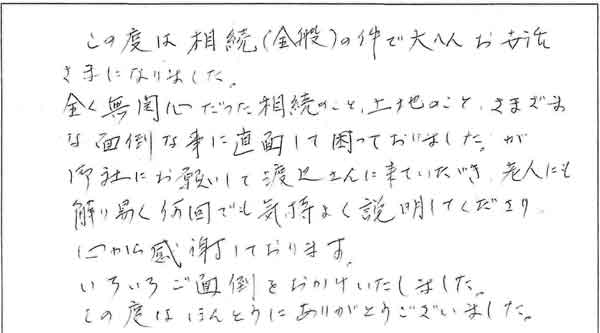 この度は相続(全般)の件で大へんお世話
さまになりました。
全く無関心だった相続のこと、土地のこと、さまざま
な面倒な事に直面して困っておりました。が
御社にお願いして渡辺さんに来ていただき、老人にも
解り易く何回でも気持よく説明してくださり
心から感謝しております。
いろいろご面倒をおかけいたしました。
この度はほんとうにありがとうございました。